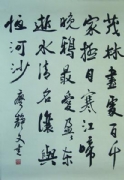 茂林盡處百千
家極目寒江啼
晚鴉最愛盈盈東
逝水清名與
恒河沙 廖靜文書